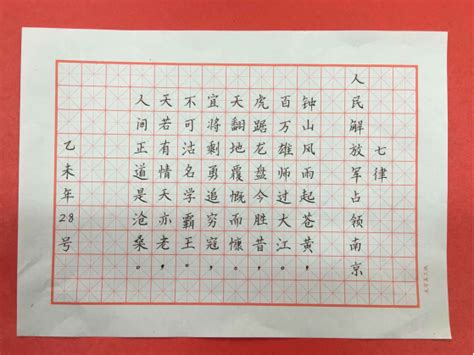 七律
人民解放军占领南京
钟山风雨起苍黄，
百万雄师过大江。
虎踞龙盘今胜昔，
天翻地覆慨而慷。
宜将剩勇追穷寇，
不可沽名学霸王。
天若有情天亦老，
人间正道是沧桑。
乙未年28号